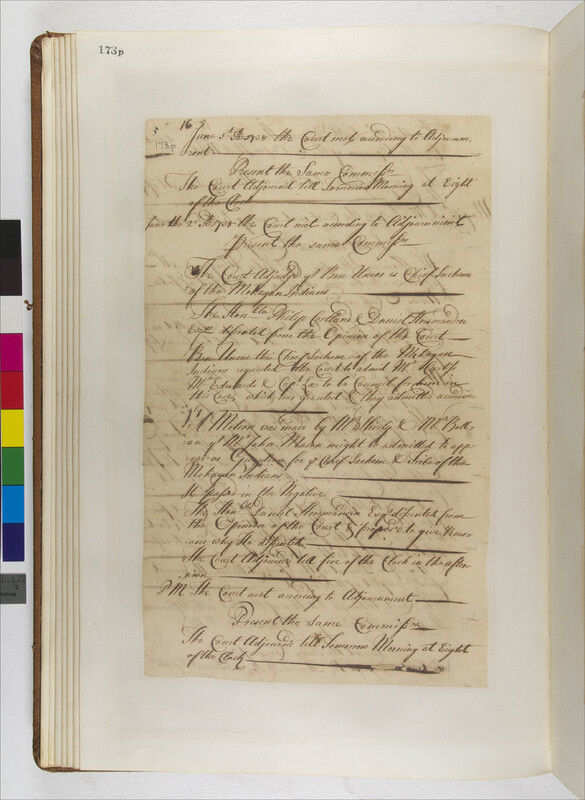 173p
16
5
173p
June 1st AD 1738 the Court met according to Adjourn-
ment
Present the Same Commissrs
The Court Adjournd till Tomorrow Morning at Eight
of the Clock
June the 2d AD 1738 the Court met according to Adjournment
Present the same Commissrs
The Court Adjudge yt Ben Uncas is Chief Sachem
of the Mohegan Indians
The Honble Philip Cortland & Daniel Horsmanden
Esqrs dissented from the Opinion of the Court
Ben Uncas the Chief Sachem of the Mohegan
Indians requested the Court to admit Mr
Mr Edwards & to be Council for him in
this Case, which was granted & they admitted accordin
A Motion was made by Mr Shirley & Mr Boll-
an yt Mr John Mason might be admitted to app
ear as Guardian for ye Chief Sachem & Tribe of the
Mohegan Indians
It passed in the Negative
The Honble Daniel Horsmanden Esqr dissented from
the Opinion of the Court & proposd to give Reas-
ons why He dissented
The Court Adjournd till five of the Clock in the after-
noon
P M The Court met according to Adjournment
Present the same Commissrs
The Court Adjournd till Tomorrow Morning at Eight
of the Clock